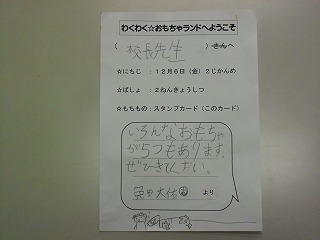 わくわく☆おもちゃランドへようこそ
( 校長先生 ) さんへ
☆にちじ :12月6日(金)2じかんめ
☆ばしょ :2ねんきょうしつ
☆もちもの:スタンプカード(このカード)
いろんなおもちゃ
が5つもあります。
ぜひきてください。
太佑 より